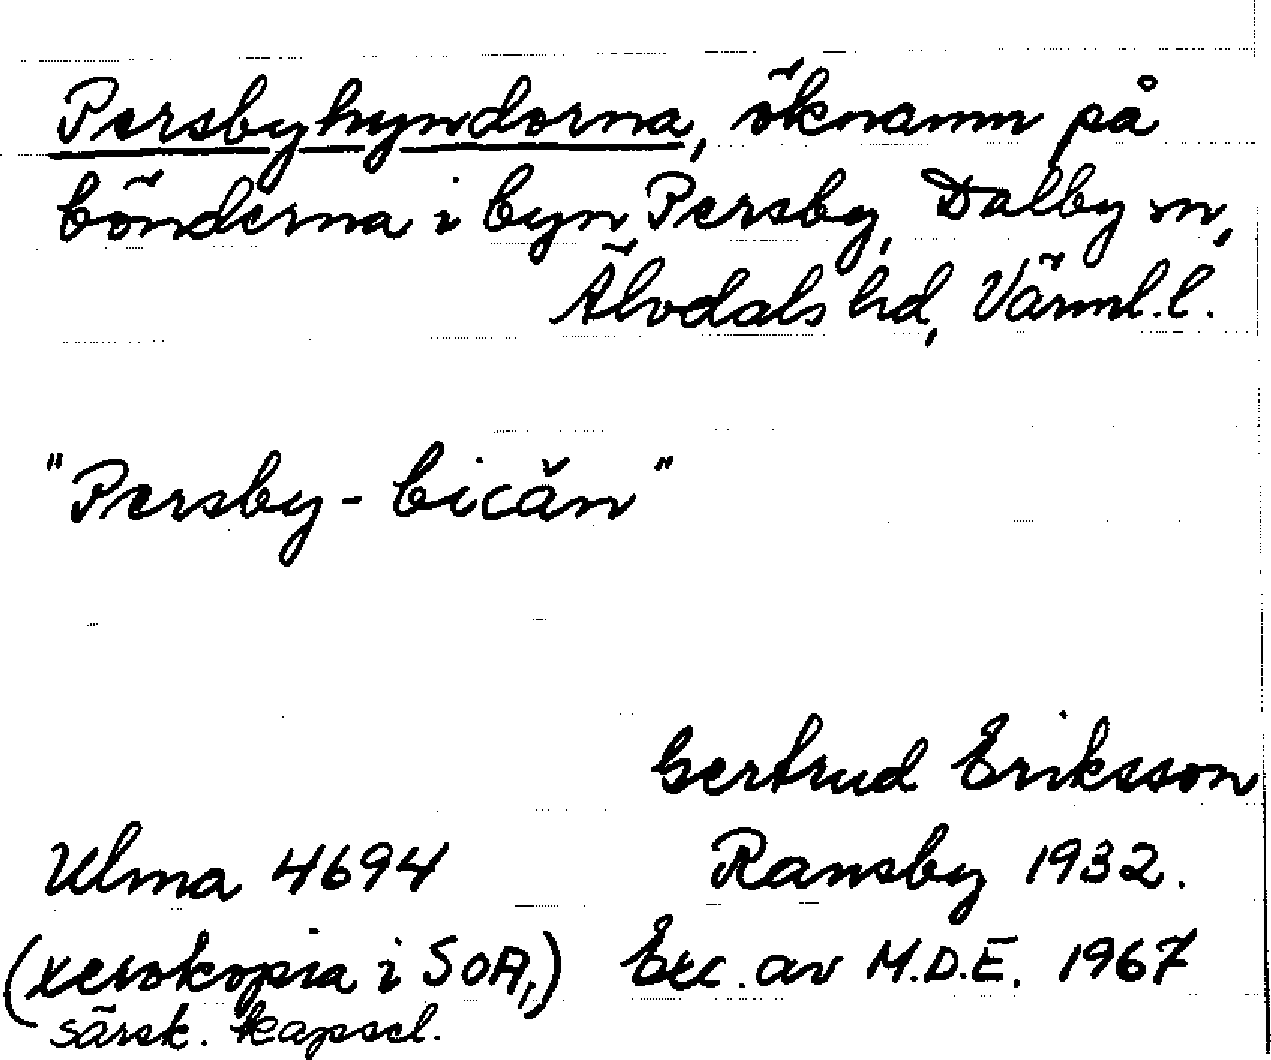 Persbyhyndorna, öknamn på
bönderna i byn Persby, Dalby sn,
Älvdals hd, Värml.l.
"Persby-bicăn"
Gertrud Eriksson
Ulma 4694 Ransby 1932.
(xerokopia i SOA,) Exc. av M.D.E. 1967
särsk. kapsel.